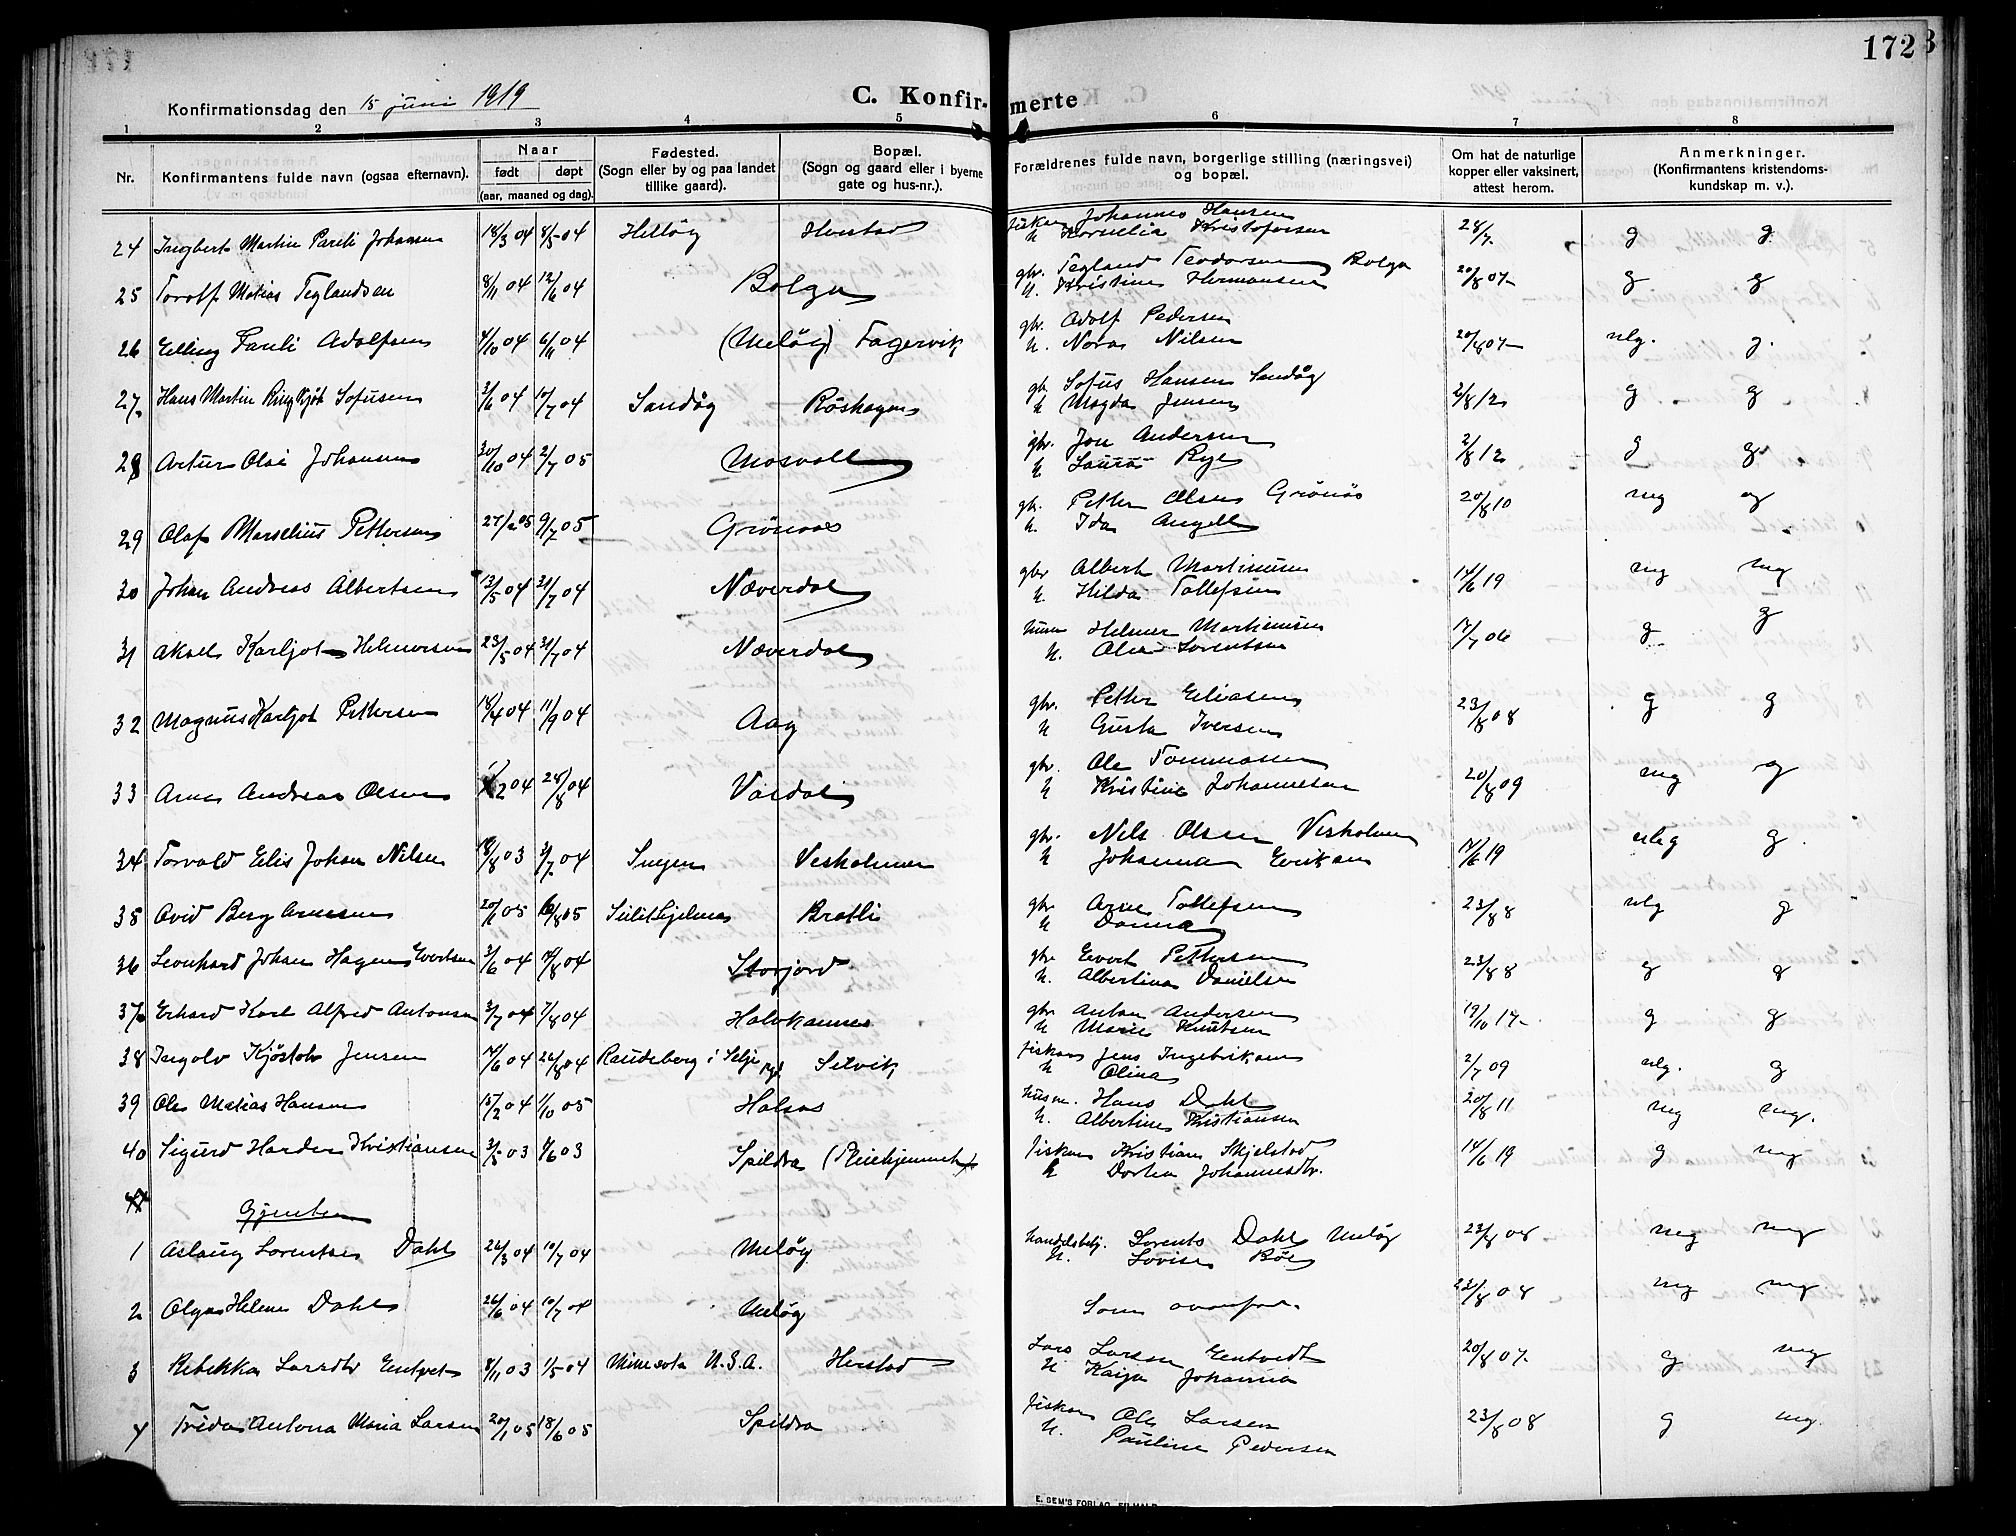 172
Konfirmationsdag den 15 juni 1919
C. Konfirmerte
1 2 3 4 5 6 7 8
Nr. Konfirmantens fulde navn (ogsaa efternavn). Naar født døpt (aar, maaned og dag). Fødested. (Sogn eller by og paa landet tillike gaard). Bopæl. (Sogn og gaard eller i byerne gate og hus-nr.). Forældrenes fulde navn, borgerlige stilling (næringsvei) og bopæl. Om hat de naturlige kopper eller vaksinert, attest herom. Anmerkninger. (Konfirmantens kristendomskundskap m. v.).
24 Ingbert Martin Pareli Johansen 18/3 04 8/5 04 Helløy Herstad fisker Johannes Hansen
h Kornelia Kristofersen 28/7 g g
25 Torolf Matias Teglandsen 8/11 04 12/6 04 Bolga gbr. Tegland Teodorsen Bolga
h. Kristine Hermansen 20/8 07 g g
26 Elling Pareli Adolfsen 4/10 04 6/11 04 (Meløy) Fagervik gbr. Adolf Pedersen
h. Nora Nilsen 20/8 07 mg. g.
27 Hans Martin Ring Kjøt Sofusen 3/6 04 10/7 04 Sandøy Røshagen gbr Sofus Hansen Sandøy
h Magda Jensen 2/8 12 g g
28 Artur Olai Johansen 30/10 04 2/7 05 Mosvoll gbr. Jon Andersen
h Laura Rye 2/8 12 g g
29 Olaf Marselius Pettersen 27/2 05 9/7 05 Grønaas gbr. Petter Olsen Grønås
h. Ida Angell 20/8 10 mg g
30 Johan Andreas Albertsen 13/5 04 31/7 04 Næverdal gbr Albert Martinusen
h. Hilda Tollefsen 14/6 19 mg mg
31 Aksel Karljot Helmersen 23/5 04 31/7 04 Næverdal husm Helmer Martinusen
h. Olea Lorentsen 17/7 06 g g
32 Magnus Karljot Pettersen 18/4 04 11/9 04 Aag gbr. Petter Eliasen
h Gusta Iversen 23/8 08 g g
33 Arne Andreas Olsen 1/2 04 28/8 04 Vardal gbr. Ole Tommasen
h Kristine Johannesen 20/8 09 mg g
34 Torvald Eilis Johan Nilsen 18/8 03 3/7 04 Ingen Veskolmen gbr. Nils Olsen Veskolmen
h Johanna Eriksen 14/6 19 mg g
35 Ovid Berg Arnesen 20/1 05 6/8 05 Sulitjelma Bratli gbr Arne Tollefsen
h Danna 23/8 8 mg g
36 Leonhard Johan Hagen Evertsen 3/6 04 14/8 04 Storjord gbr Evert Pettersen
h. Albertina Danielsen 23/8 8 g g
37 Erhard Karl Alfred Antonsen 3/7 04 7/8 04 Halvkannes gbr Anton Andersen
h Marie Knutsen 19/10 17 g g
38 Ingolv Kjøstolv Jensen 14/6 04 26/8 04 Raudeberg i Selje Selvik fisker Jens Ingebriktsen
h Olina 2/7 09 mg. g
39 Ole Matias Hansen 15/2 04 1/10 05 Halsa husm. Hans Dahl
h. Albertine Kristiansen 20/8 11 mg mg.
40 Sigurd Harder Kristiansen 3/5 03 7/6 03 Spildra fisker Kristian Skjelstad
h Dortea Johannesdtr. 14/6 19 g mg
Gjenter
1 Aslaug Lorentse Dahl 26/3 04 10/7 04 Meløy handelsbetj. Lorents Dahl Meløy
h. Lovise Bøe 23/8 08 mg mg
2 Olga Helene Dahl 26/6 04 10/7 04 Meløy Som ovenfor. 23/8 08 mg mg
3 Rebekka Larsdtr Entvet 8/11 03 1/5 04 Minesota U.S.A. Herstad Lars Larsen Entvedt
h Kaija Johanna 20/8 07. g mg
4 Frida Antona Maria Larsen 20/1 05 18/6 05 Spildra fisker Ole Larsen
h. Pauline Pedersen 23/8 08 g mg.